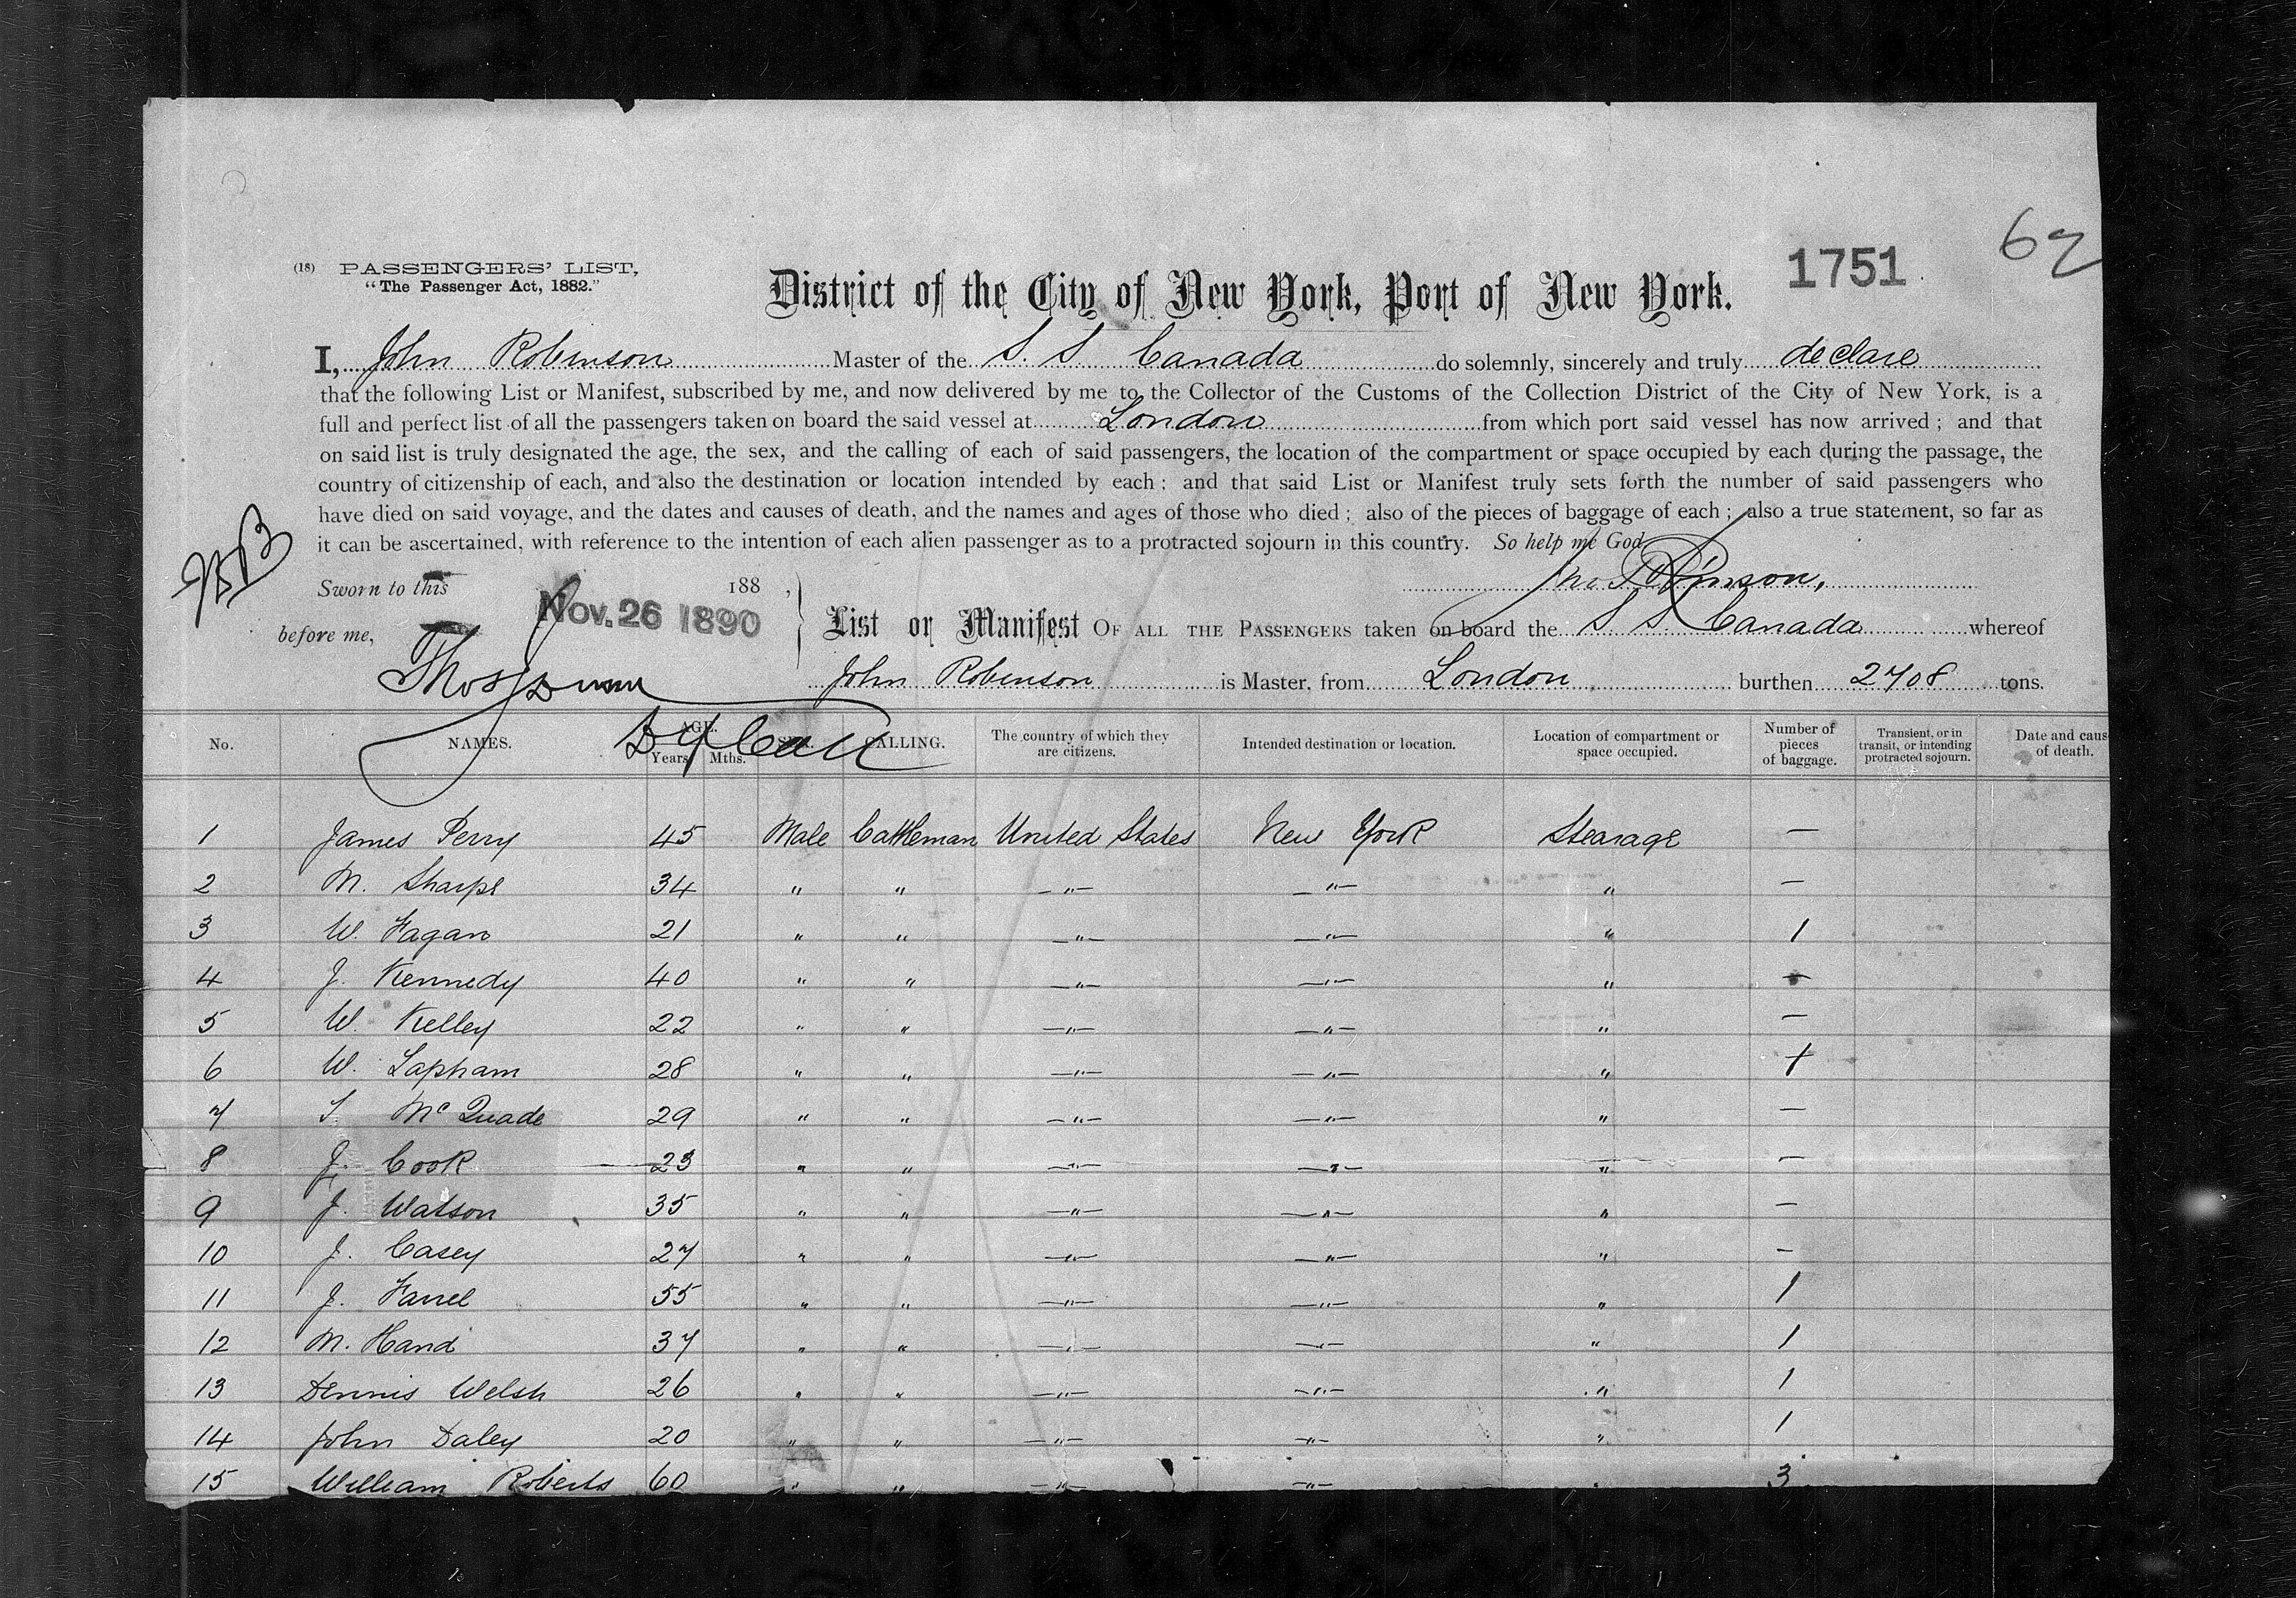 (18) PASSENGERS' LIST,
"The Passenger Act, 1882."
District of the City of New York, Port of New York.
1751
62
I, John Robinson Master of the S. S. Canada do solemnly, sincerely and truly declare
that the following List or Manifest, subscribed by me, and now delivered by me to the Collector of the Customs of the Collection District of the City of New York, is a
full and perfect list of all the passengers taken on board the said vessel at London from which port said vessel has now arrived; and that
on said list is truly designated the age, the sex, and the calling of each of said passengers, the location of the compartment or space occupied by each during the passage, the
country of citizenship of each, and also the destination or location intended by each; and that said List or Manifest truly sets forth the number of said passengers who
have died on said voyage, and the dates and causes of death, and the names and ages of those who died; also of the pieces of baggage of each; also a true statement, so far as
it can be ascertained, with reference to the intention of each alien passenger as to a protracted sojourn in this country. So help me God
Sworn to this Nov. 26 1890 188 ,
Jno Robinson,
before me,
List or Manifest OF ALL THE PASSENGERS taken on board the S S Canada whereof
John Robinson is Master, from London burthen 2708 tons.
Thos Dunn
Dy Coll
No. NAMES. AGE. Years Mths. SEX. CALLING. The country of which they are citizens. Intended destination or location. Location of compartment or space occupied. Number of pieces of baggage. Transient, or in transit, or intending protracted sojourn. Date and cause of death.
1 James Perry 45 Male Cattleman United States New York Stearage —
2 M. Sharpe 34 " " —"— —"— " —
3 W. Fagan 21 " " —"— —"— " 1
4 J. Kennedy 40 " " —"— —"— " —
5 W. Kelley 22 " " —"— —"— " —
6 W. Lapham 28 " " —"— —"— " 1
7 T. McQuade 29 " " —"— —"— " —
8 J. Cook 23 " " —"— —"— " —
9 J. Watson 35 " " —"— —"— " —
10 J. Casey 27 " " —"— —"— " —
11 J. Farrel 55 " " —"— —"— " 1
12 M. Hand 37 " " —"— —"— " 1
13 Dennis Welsh 26 " " —"— —"— " 1
14 John Daley 20 " " —"— —"— " 1
15 William Roberts 60 " " —"— —"— " 3